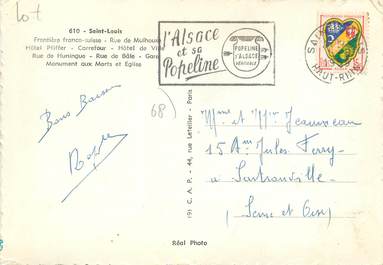 lot
610 - Saint-Louis
Frontière franco-suisse - Rue de Mulhouse
Hôtel Pfiffer - Carrefour - Hôtel de Ville
Rue de Huningue - Rue de Bâle - Gare
Monument aux Morts et Eglise
l'Alsace
et sa
Popeline
POPELINE
D'ALSACE
HAUT-RHIN
68)
Bons Baisers
191 C. A. P. - 44, rue Letellier - Paris
Mme et Mr Jeauneau
15 Av Jules Ferry
à Sartrouville
(Seine et Oise)
Réal Photo